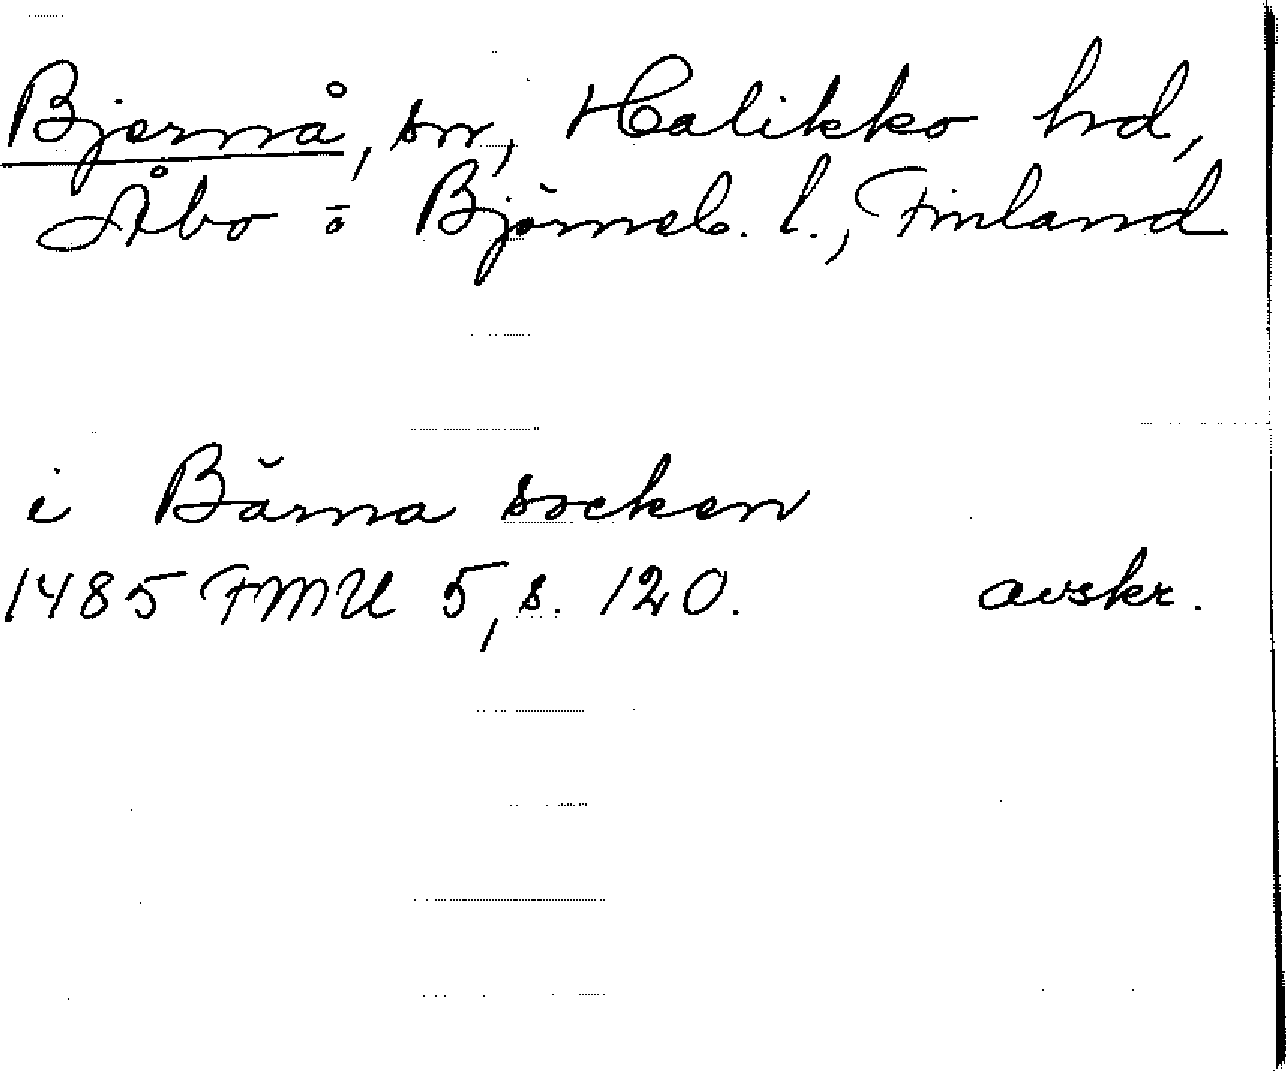 Bjernå, sn, Halikko hd,
Åbo o Björneb. l., Finland
i Bärna socken
1485 FMU 5, s. 120. avskr.